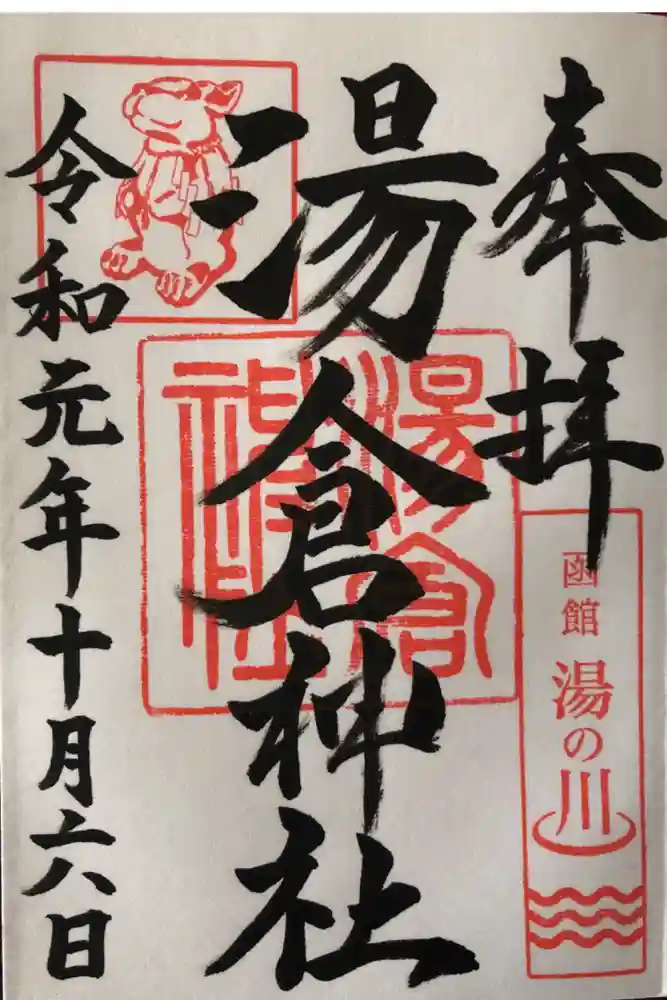 奉拝
函館
湯の川
湯倉神社
湯倉神社
令和元年十月六日